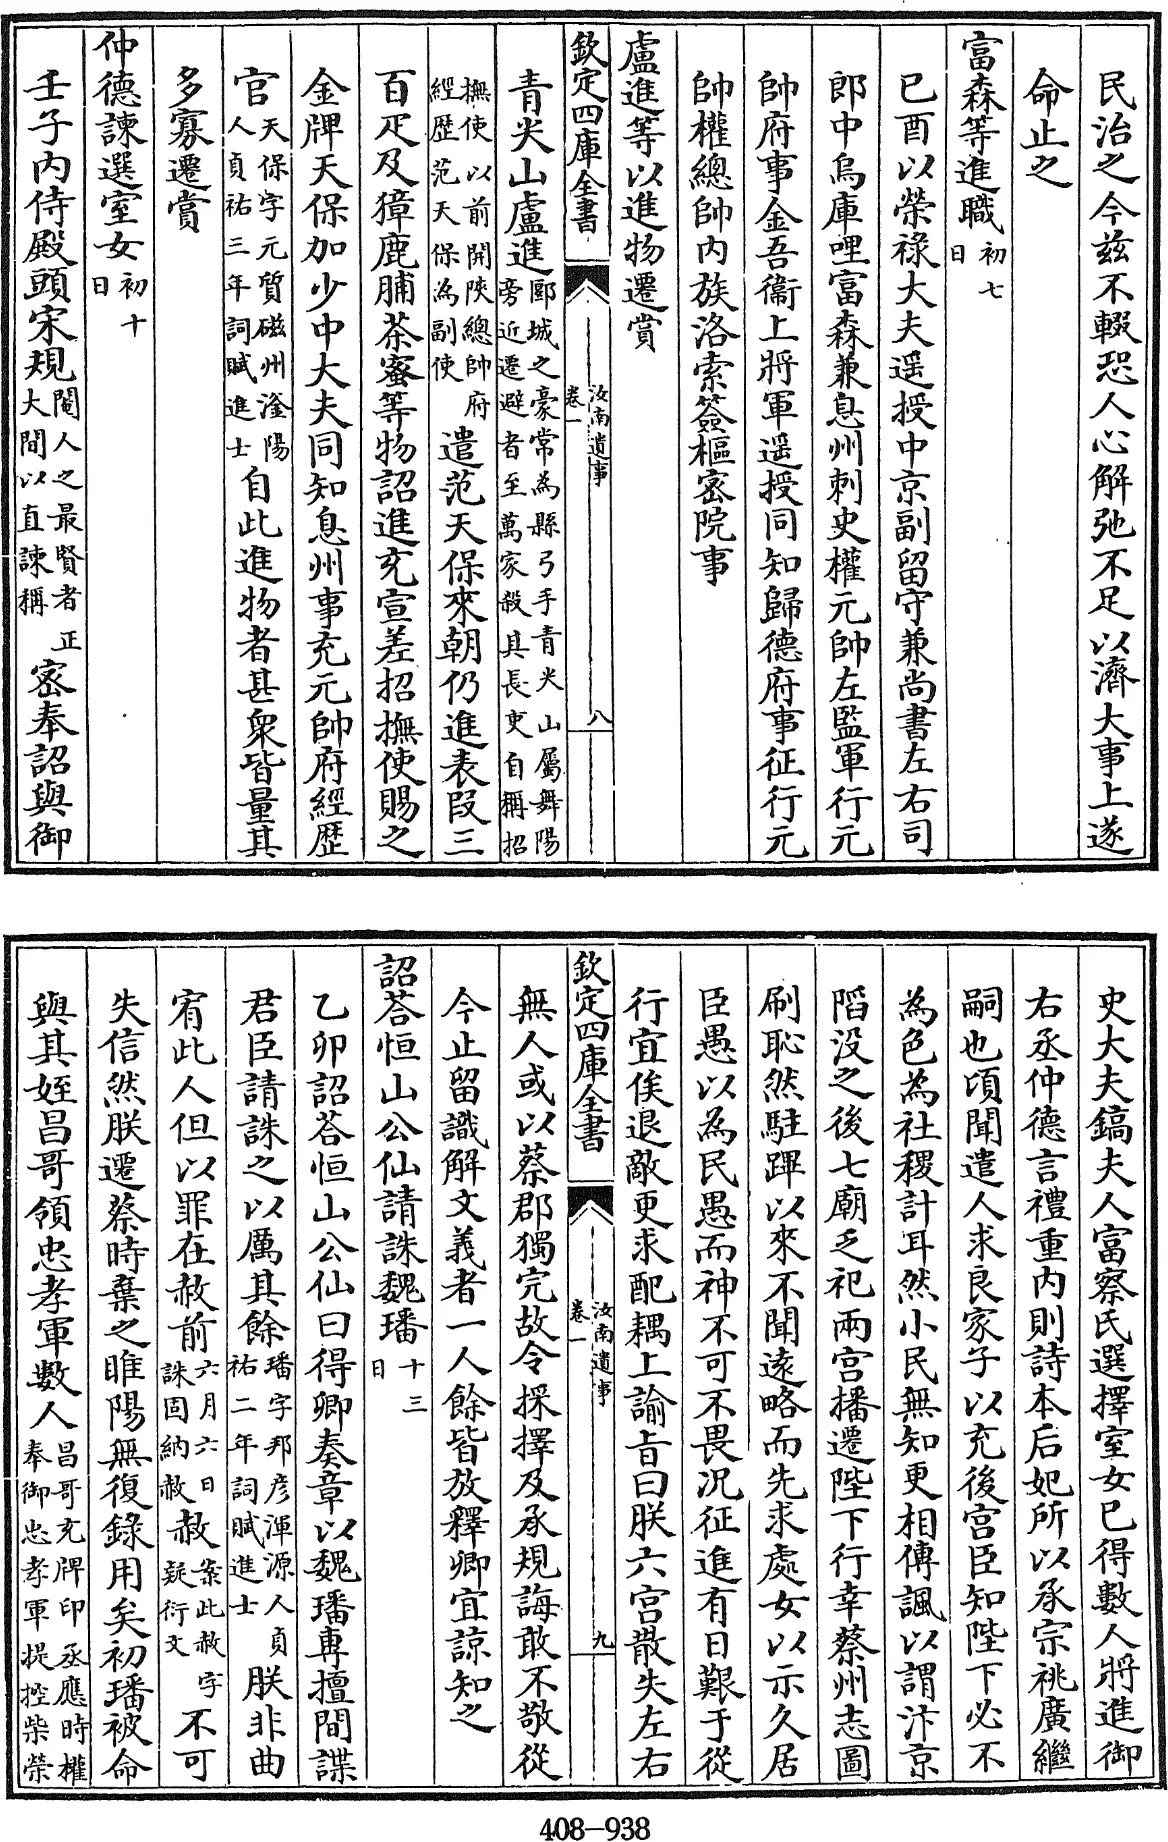 民治之今兹不輟恐人心解弛不足以濟大事上遂
命止之
富森等進職初七日
已酉以榮祿大夫遥授中京副留守兼尚書左右司
郎中烏庫哩富森兼息州刺史權元帥左監軍行元
帥府事金吾衛上將軍遥授同知歸德府事征行元
帥權總帥内族洛索簽樞密院事
盧進等以進物遷賞
欽定四庫全書
汝南遺事
卷一
八
青尖山盧進郾城之豪常為縣弓手青尖山屬舞陽旁近遷避者至萬家殺其長吏自稱招
撫使以前開陜總帥府經歴范天保為副使遣范天保來朝仍進表段三
百疋及獐鹿脯茶蜜等物詔進充宣差招撫使賜之
金牌天保加少中大夫同知息州事充元帥府經歴
官天保字元質磁州滏陽人貞祐三年詞賦進士自此進物者甚衆皆量其
多寡遷賞
仲德諫選室女初十日
壬子内侍殿頭宋規閹人之最賢者正大間以直諫稱密奉詔與御
史大夫鎬夫人富察氏選擇室女已得數人將進御
右丞仲德言禮重内則詩本后妃所以承宗祧廣繼
嗣也頃聞遣人求良家子以充後宫臣知陛下必不
為色為社稷計耳然小民無知更相傳諷以謂汴京
陷没之後七廟乏祀兩宫播遷陛下行幸蔡州志圖
刷恥然駐蹕以來不聞逺略而先求處女以示久居
臣愚以為民愚而神不可不畏况征進有日艱于從
行宜俟退敵更求配耦上諭旨曰朕六宫散失左右
欽定四庫全書
汝南遺事
卷一
九
無人或以蔡郡獨完故令採擇及承規誨敢不敬從
今止留識解文義者一人餘皆放釋卿宜諒知之
詔荅恒山公仙請誅魏璠十三日
乙卯詔荅恒山公仙曰得卿奏章以魏璠專擅間諜
君臣請誅之以厲其餘璠字邦彦渾源人貞祐二年詞賦進士朕非曲
宥此人但以罪在赦前六月六日誅固納赦赦案此赦字疑衍文不可
失信然朕遷蔡時棄之睢陽無復錄用矣初璠被命
與其姪昌哥領忠孝軍數人昌哥充牌印丞應時權奉御忠孝軍提控柴榮
408-938